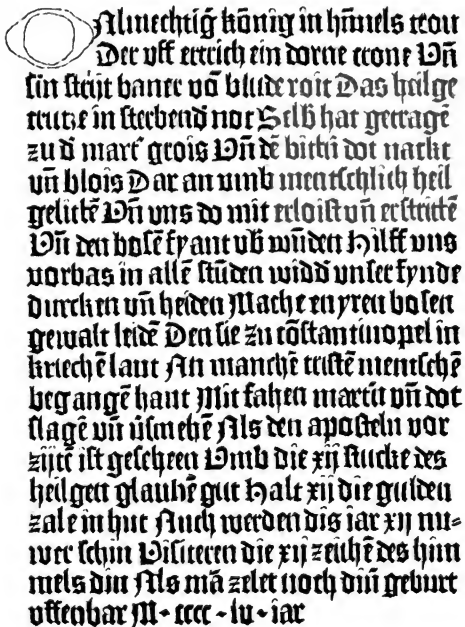 Almechtig könig in hīmels tron
Der uff ertrich ein dorne crone Vn̄
sin strijt baner vō blude roit Das heilge
crutze in sterbend not Selb hat getragē
zu d marť grois Vn̄ dē bittˢn dot nackt
vn̄ blois Dar an vmb mentschlich heil
gelittē Vn̄ vns do mit erloist vn̄ erstrittē
Vn̄ den bosē fyant ubˢwūden Hilff uns
vorbas in allē stūden widd unser fynde
durcken vn̄ heiden Mache en yren bosen
gewalt leidē Den sie zu cōstantinopel in
kriechē lant An manchē tristē mentschē
begangē hant Mit fahen martir vn̄ dot
slagē vn̄ ůsmehē Als den aposteln vor
zijtē ist gescheen Vmb die xij stucke des
heilgen glaubē gut Halt xij die gulden
zale in hut Auch werden dis iar xij nu-
wer schin Visiteren die xij zeichē des him
mels din Als mā zelet noch din̄ geburt
offenbar M · cccc · lv · iar